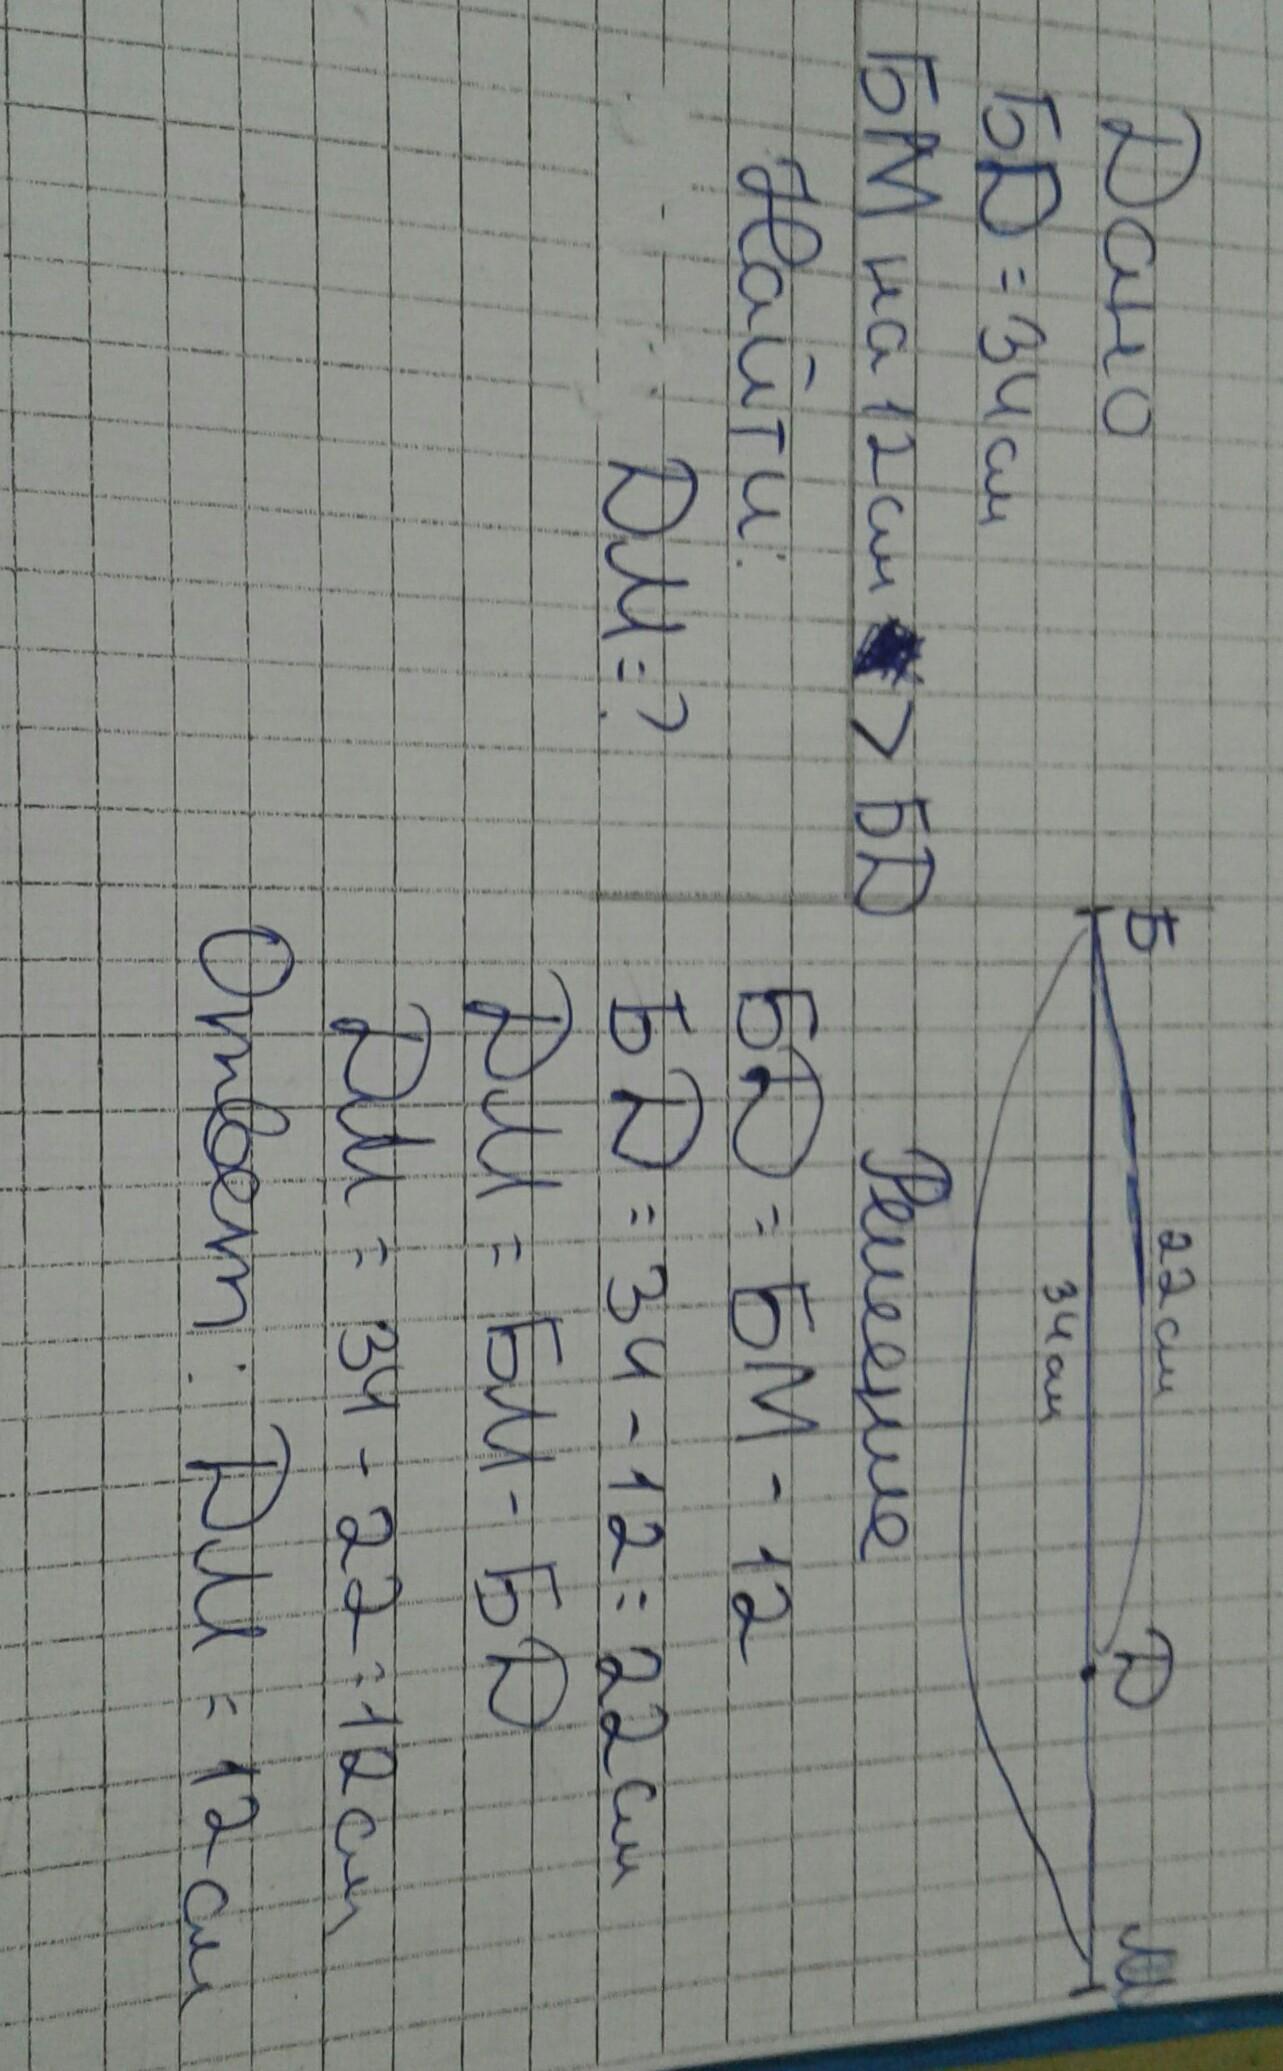 Дано
БД = 34 см
БМ на 12 см > БД
Найти:
DM = ?
Б
22 см
D
М
34 см
Решение
БD = БМ - 12
БD = 34 - 12 = 22 см
DM = БМ - БD
DM = 34 - 22 = 12 см
Ответ: DM = 12 см